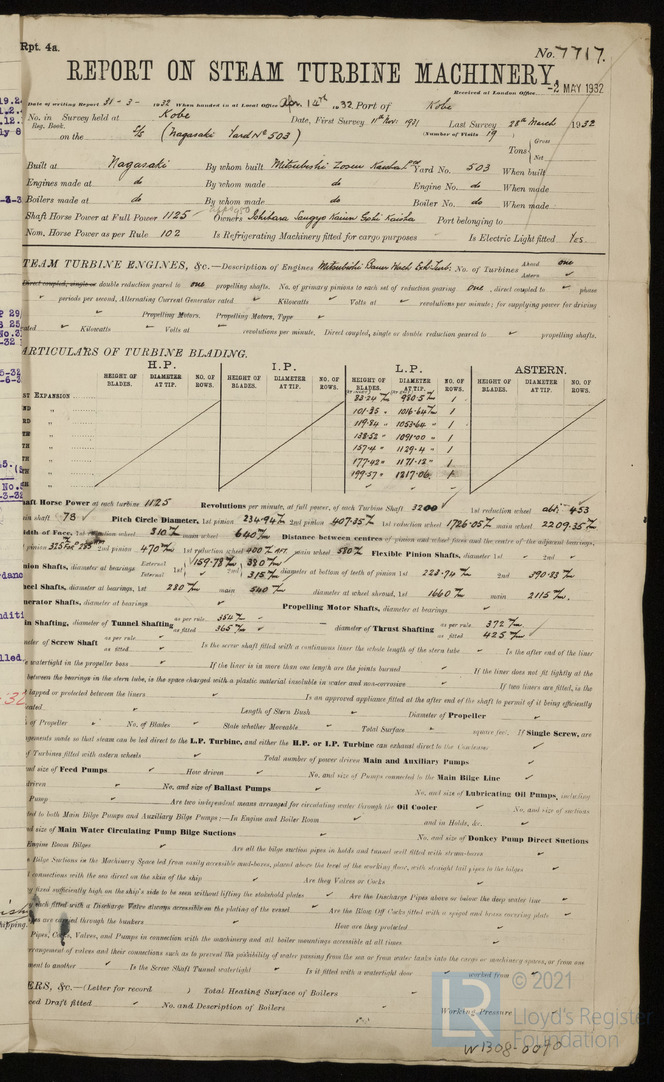 Rpt. 4a.
No. 7717.
REPORT ON STEAM TURBINE MACHINERY.
Received at London Office -2 MAY 1932
Date of writing Report 31-3-1932 When handed in at Local Office Apr. 14th 1932 Port of Kobe
No. in Survey held at Kobe Date, First Survey 11th Nov: 1931 Last Survey 28th March 1932
Reg. Book. (Number of Visits 19
on the S/S (Nagasaki Yard No 503) Tons Gross Net
Built at Nagasaki By whom built Mitsubishi Zosen Kaisha Yard No. 503 When built
Engines made at do By whom made do Engine No. do When made
Boilers made at do By whom made do Boiler No. do When made
Shaft Horse Power at Full Power 1125 Owners Ishihara Sangyo Kaiun Goshi Kaisha Port belonging to
Nom. Horse Power as per Rule 102 Is Refrigerating Machinery fitted for cargo purposes Is Electric Light fitted Yes
TEAM TURBINE ENGINES, &c.—Description of Engines Mitsubishi Bauer Wach Exh. Turb. No. of Turbines Ahead one Astern ✓
Direct coupled, single or double reduction geared to one propelling shafts. No. of primary pinions to each set of reduction gearing one, direct coupled to ✓ phase
✓ periods per second, Alternating Current Generator rated ✓ Kilowatts ✓ Volts at ✓ revolutions per minute; for supplying power for driving
Propelling Motors, Propelling Motors, Type ✓
rated ✓ Kilowatts ✓ Volts at ✓ revolutions per minute. Direct coupled, single or double reduction geared to ✓ propelling shafts.
ARTICULARS OF TURBINE BLADING.
H.P. I.P. L.P. ASTERN.
HEIGHT OF BLADES. DIAMETER AT TIP. NO. OF ROWS. HEIGHT OF BLADES. DIAMETER AT TIP. NO. OF ROWS. HEIGHT OF BLADES. DIAMETER AT TIP. NO. OF ROWS. HEIGHT OF BLADES. DIAMETER AT TIP. NO. OF ROWS.
ST EXPANSION 83.24 m/m 980.5 m/m 1
ND " 101.35 " 1016.64 m/m 1
RD " 119.84 " 1053.64 " 1
TH " 138.52 " 1091.00 " 1
TH " 157.4 " 1129.4 " 1
TH " 177.42 " 1171.12 " 1
TH " 199.57 " 1217.06 1
TH "
haft Horse Power at each turbine 1125 Revolutions per minute, at full power, of each Turbine Shaft 3200 1st reduction wheel abt. 453
ain shaft 78 Pitch Circle Diameter, 1st pinion 234.94 m/m 2nd pinion 407.35 m/m 1st reduction wheel 1726.05 m/m main wheel 2209.35 m/m
idth of Face, 1st reduction wheel 310 m/m main wheel 640 m/m Distance between centres of pinion and wheel faces and the centre of the adjacent bearings,
pinion 325 2nd pinion 470 m/m 1st reduction wheel 400 m/m main wheel 580 m/m Flexible Pinion Shafts, diameter 1st ✓ 2nd ✓
nion Shafts, diameter at bearings External Internal 1st 159.78 m/m 2nd 320 m/m 315 m/m diameter at bottom of teeth of pinion 1st 223.74 m/m 2nd 390.83 m/m
heel Shafts, diameter at bearings, 1st 230 m/m main 540 m/m diameter at wheel shroud, 1st 1660 m/m main 2115 m/m.
nerator Shafts, diameter at bearings Propelling Motor Shafts, diameter at bearings ✓
in Shafting, diameter of Tunnel Shafting as per rule. 354 m/m as fitted 365 m/m diameter of Thrust Shafting as per rule. 372 m/m as fitted 425 m/m
meter of Screw Shaft as per rule. ✓ as fitted. ✓ Is the screw shaft fitted with a continuous liner the whole length of the stern tube ✓ Is the after end of the liner
e watertight in the propeller boss ✓ If the liner is in more than one length are the joints burned ✓ If the liner does not fit tightly at the
between the bearings in the stern tube, is the space charged with a plastic material insoluble in water and non-corrosive ✓ If two liners are fitted, is the
lapped or protected between the liners ✓ Is an approved appliance fitted at the after end of the shaft to permit of it being efficiently
cated ✓ Length of Stern Bush ✓ Diameter of Propeller ✓
of Propeller ✓ No. of Blades ✓ State whether Moveable ✓ Total Surface ✓ square feet. If Single Screw, are
ngements made so that steam can be led direct to the L.P. Turbine, and either the H.P. or I.P. Turbine can exhaust direct to the Condenser ✓
of Turbines fitted with astern wheels ✓ Total number of power driven Main and Auxiliary Pumps ✓
and size of Feed Pumps ✓ How driven ✓ No. and size of Pumps connected to the Main Bilge Line ✓
driven ✓ No. and size of Ballast Pumps ✓ No. and size of Lubricating Oil Pumps, including
Pump ✓ Are two independent means arranged for circulating water through the Oil Cooler ✓ No. and size of suctions
ted to both Main Bilge Pumps and Auxiliary Bilge Pumps:—In Engine and Boiler Room ✓ and in Holds, &c. ✓
nd size of Main Water Circulating Pump Bilge Suctions ✓ No. and size of Donkey Pump Direct Suctions
Engine Room Bilges ✓ Are all the bilge suction pipes in holds and tunnel well fitted with strum-boxes ✓
e Bilge Suctions in the Machinery Space led from easily accessible mud-boxes, placed above the level of the working floor, with straight tail pipes to the bilges ✓
connections with the sea direct on the skin of the ship ✓ Are they Valves or Cocks ✓
y fixed sufficiently high on the ship's side to be seen without lifting the stokehold plates ✓ Are the Discharge Pipes above or below the deep water line ✓
y each fitted with a Discharge Valve always accessible on the plating of the vessel ✓ Are the Blow Off Cocks fitted with a spigot and brass covering plate ✓
pes are carried through the bunkers ✓ How are they protected ✓
Pipes, Cocks, Valves, and Pumps in connection with the machinery and all boiler mountings accessible at all times ✓
rrangement of valves and their connections such as to prevent the possibility of water passing from the sea or from water tanks into the cargo or machinery spaces, or from one
ment to another ✓ Is the Screw Shaft Tunnel watertight ✓ Is it fitted with a watertight door ✓ worked from ✓
ERS, &c.—(Letter for record ) Total Heating Surface of Boilers
ced Draft fitted ✓ No. and Description of Boilers Working Pressure ✓
LR © 2021
Lloyd's Register
Foundation
W1308-0090